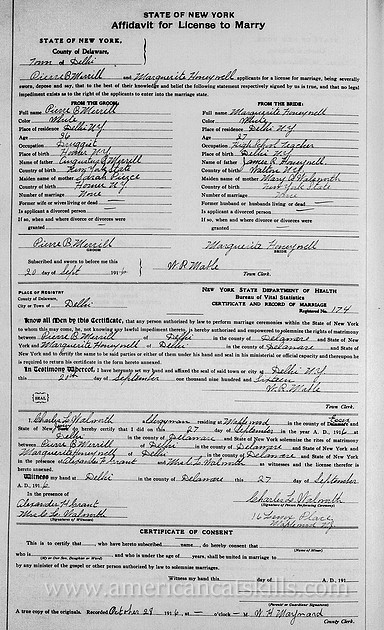 STATE OF NEW YORK
Affidavit for License to Marry
STATE OF NEW YORK,
County of Delaware,
Town of Delhi
Pierre B Merrill and Marguerite Honeywell applicants for a license for marriage, being severally
sworn, depose and say, that to the best of their knowledge and belief the following statement respectively signed by us is true, and that no legal
impediment exists as to the right of the applicants to enter into the marriage state.
FROM THE GROOM: FROM THE BRIDE:
Full name Pierre B Merrill Full name Marguerite Honeywell
Color White Color White
Place of residence Delhi NY Place of residence Delhi NY
Age 26 Age 27
Occupation Druggist Occupation High School Teacher
Place of birth Homer N.Y. Place of birth Delhi N.Y.
Name of father Augustus Merrill Name of father James R Honeywell
Country of birth New York State Country of birth Walton N.Y.
Maiden name of mother Sarah Pierce Maiden name of mother Mary Walworth
Country of birth Homer N.Y. Country of birth New York State
Number of marriage None Number of marriage None
Former wife or wives living or dead Former husband or husbands living or dead
Is applicant a divorced person Is applicant a divorced person
If so, when and where divorce or divorces were If so, when and where divorce or divorces were
granted granted
Pierre B. Merrill Marguerite Honeywell
BRIDE
Subscribed and sworn to before me this
20 day of Sept 1916 W. R. Mable Town Clerk.
PLACE OF REGISTRY NEW YORK STATE DEPARTMENT OF HEALTH
County of Delaware, Bureau of Vital Statistics
City or Town of Delhi CERTIFICATE AND RECORD OF MARRIAGE
Registered No. 174
Know all Men by this Certificate, that any person authorised by law to perform marriage ceremonies within the State of New York
to whom this may come, he, not knowing any lawful impediment thereto, is hereby authorised and empowered to solemnize the rights of matrimony
between Pierre B Merrill of Delhi in the county of Delaware and State of New
York and Marguerite Honeywell of Delhi in the county of Delaware and State of New
York and to certify the same to be said parties or either of them under his hand and seal in his ministerial or official capacity and thereupon he
is required to return his certificate in the form hereto annexed.
In Testimony Whereof, I have hereunto set my hand and affixed the seal of said town or city at Delhi N.Y.
this day of September one thousand nine hundred and sixteen
W. R. Mable
Town Clerk.
SEAL
I, Charles L Walworth Clergyman residing at in the county of and
State of New certify that I did on this 27 day of September in the year A.D. 1916
Delhi in the county of Delaware and State of New York solemnize the rites of matrimony
between Pierre B Merrill of Delhi in the county of Delaware and State of New York and
Marguerite Honeywell of Delhi in the county of Delaware and State of New York in the
presence of Alexander F Grant and L Walworth as witnesses and the license therefor
is hereto annexed.
Witness my hand at Delhi in the county of Delaware this 27 day of September
A.D., 1916
In the presence of Charles L. Walworth
Alexander F. Grant (Signature of Person Performing Ceremony)
L. Walworth 16 Lenox Place
(Signatures of Witness)
CERTIFICATE OF CONSENT
This is to certify that who have hereto subscribed name do hereby consent that
(Name of Minor)
who is and who is under the age of years, shall be united in marriage to
(My or Our Son, Daughter or Ward)
by any minister of the gospel or other person authorized by law to solemnize marriages.
Witness my hand this day of A.D. 191
(Parental or Guardians Signature)
A true copy of the original. Recorded October 28 1916 at o'clock M. W. H. Maynard
County Clerk.
www.americancatskills.com